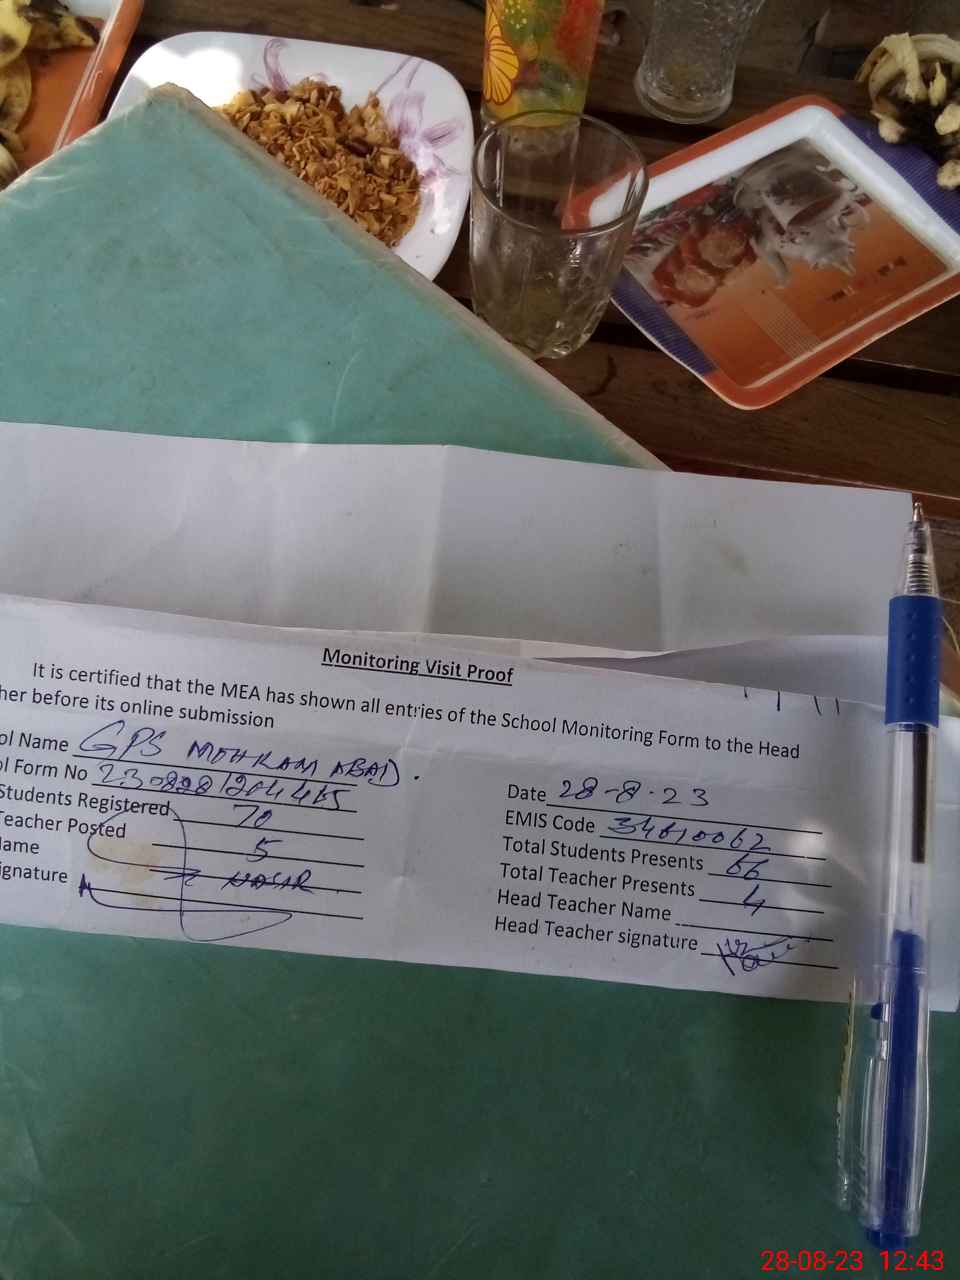 Monitoring Visit Proof
It is certified that the MEA has shown all entries of the School Monitoring Form to the Head
her before its online submission
ol Name GPS MOHKAM ABAD.
ol Form No
Students Registered 70
Teacher Posted 5
Name NASIR
ignature
Date 28-8-23
EMIS Code 34610062
Total Students Presents 66
Total Teacher Presents 4
Head Teacher Name
Head Teacher signature
28-08-23 12:43